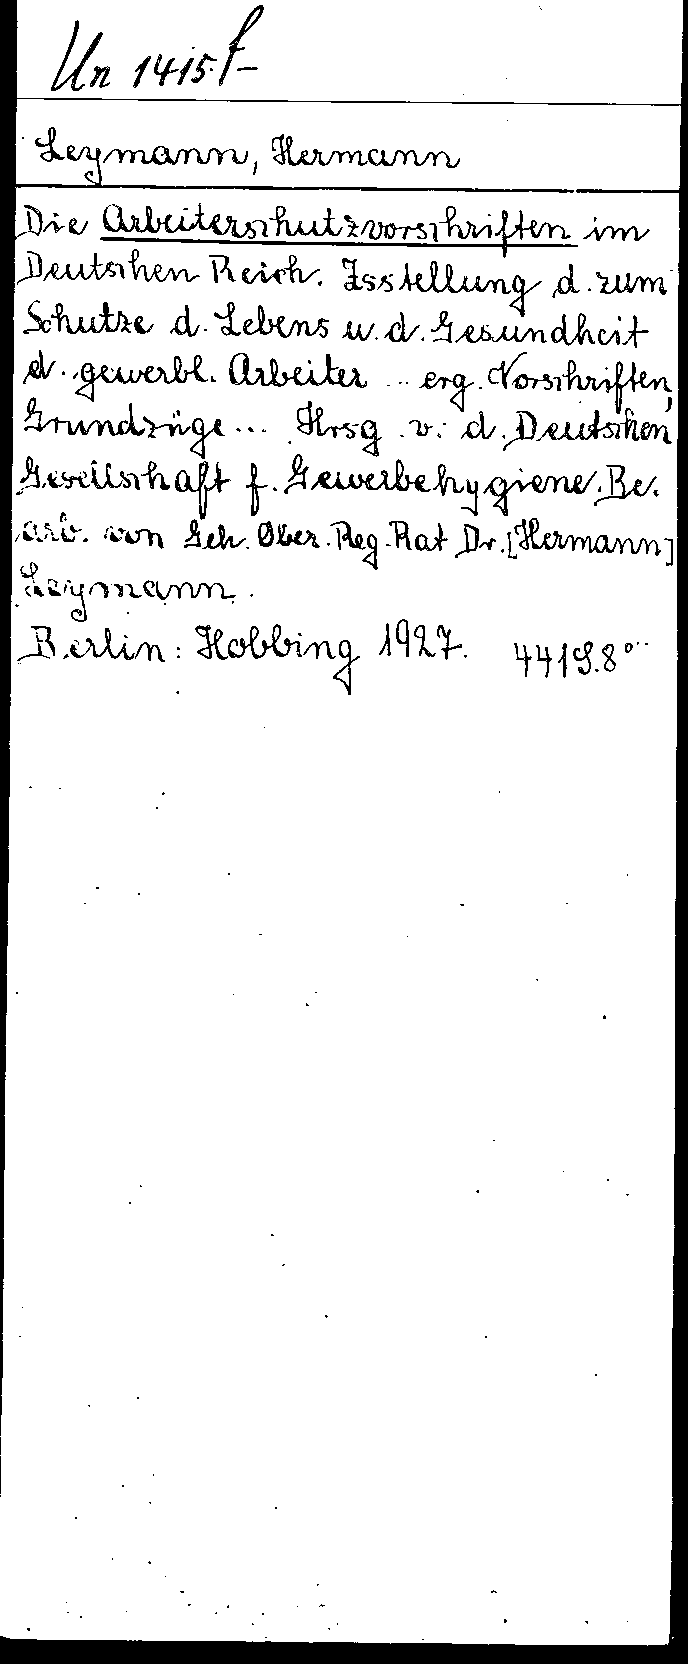 Un 1415 f
Leymann, Hermann
Die Arbeiterschutzvorschriften im
Deutschen Reich. Zsstellung d. zum
Schutze d. Lebens u. d. Gesundheit
d. gewerbl. Arbeiter ... erg. Vorschriften,
Grundzüge... Hrsg. v. d. Deutschen
Gesellschaft f. Gewerbehygiene. Be-
arb. von Geh. Ober. Reg. Rat Dr. [Hermann]
Leymann.
Berlin: Hobbing 1927. 441 S. 8°